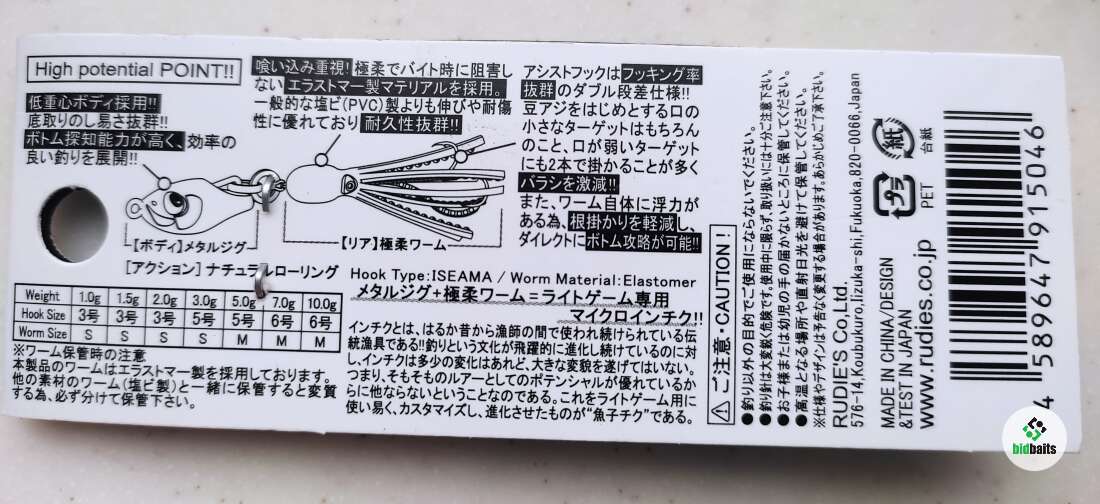 High potential POINT!!
低重心ボディ採用!!
底取りのし易さ抜群!!
ボトム探知能力が高く、効率の
良い釣りを展開!!
喰い込み重視!極柔でバイト時に阻害し
ないエラストマー製マテリアルを採用。
一般的な塩ビ(PVC)製よりも伸びや耐傷
性に優れており耐久性抜群!!
アシストフックはフッキング率
抜群のダブル段差仕様!!
豆アジをはじめとする口の
小さなターゲットはもちろん
のこと、口が弱いターゲット
にも2本で掛かることが多く
バラシを激減!!
また、ワーム自体に浮力が
ある為、根掛かりを軽減し、
ダイレクトにボトム攻略が可能!!
【ボディ】メタルジグ
【リア】極柔ワーム
[アクション]ナチュラルローリング
Weight 1.0g 1.5g 2.0g 3.0g 5.0g 7.0g 10.0g
Hook Size 3号 3号 3号 5号 5号 6号 6号
Worm Size S S S S M M M
※ワーム保管時の注意
本製品のワームはエラストマー製を採用しております。
他の素材のワーム(塩ビ製)と一緒に保管すると変質
する為、必ず分けて保管下さい。
Hook Type:ISEAMA / Worm Material:Elastomer
メタルジグ+極柔ワーム=ライトゲーム専用
マイクロインチク!!
インチクとは、はるか昔から漁師の間で使われ続けられている伝
統漁具である!!釣りという文化が飛躍的に進化し続けているのに対
し、インチクは多少の変化はあれど、大きな変貌を遂げてはいない。
つまり、そもそものルアーとしてのポテンシャルが優れているか
らに他ならないということなのである。これをライトゲーム用に
使い易く、カスタマイズし、進化させたものが"魚子チク"である。
⚠ご注意・CAUTION!
●釣り以外の目的でご使用にならないでください。
●釣り針は大変鋭く危険です。使用中に限らず、取り扱いには十分ご注意下さい。
●お子様または幼児の手の届かないところに保管してください。
●高温となる場所や直射日光を避けて保管してください。
※仕様やデザインは予告なく変更する場合があります。あらかじめご了承下さい。
RUDIE'S Co,Ltd.
576-14,Koubukuro,Iizuka-shi,Fukuoka,820-0066,Japan
MADE IN CHINA/DESIGN
&TEST IN JAPAN
www.rudies.co.jp
プラ
PET
紙
台紙
4 589647 915046
bidbaits